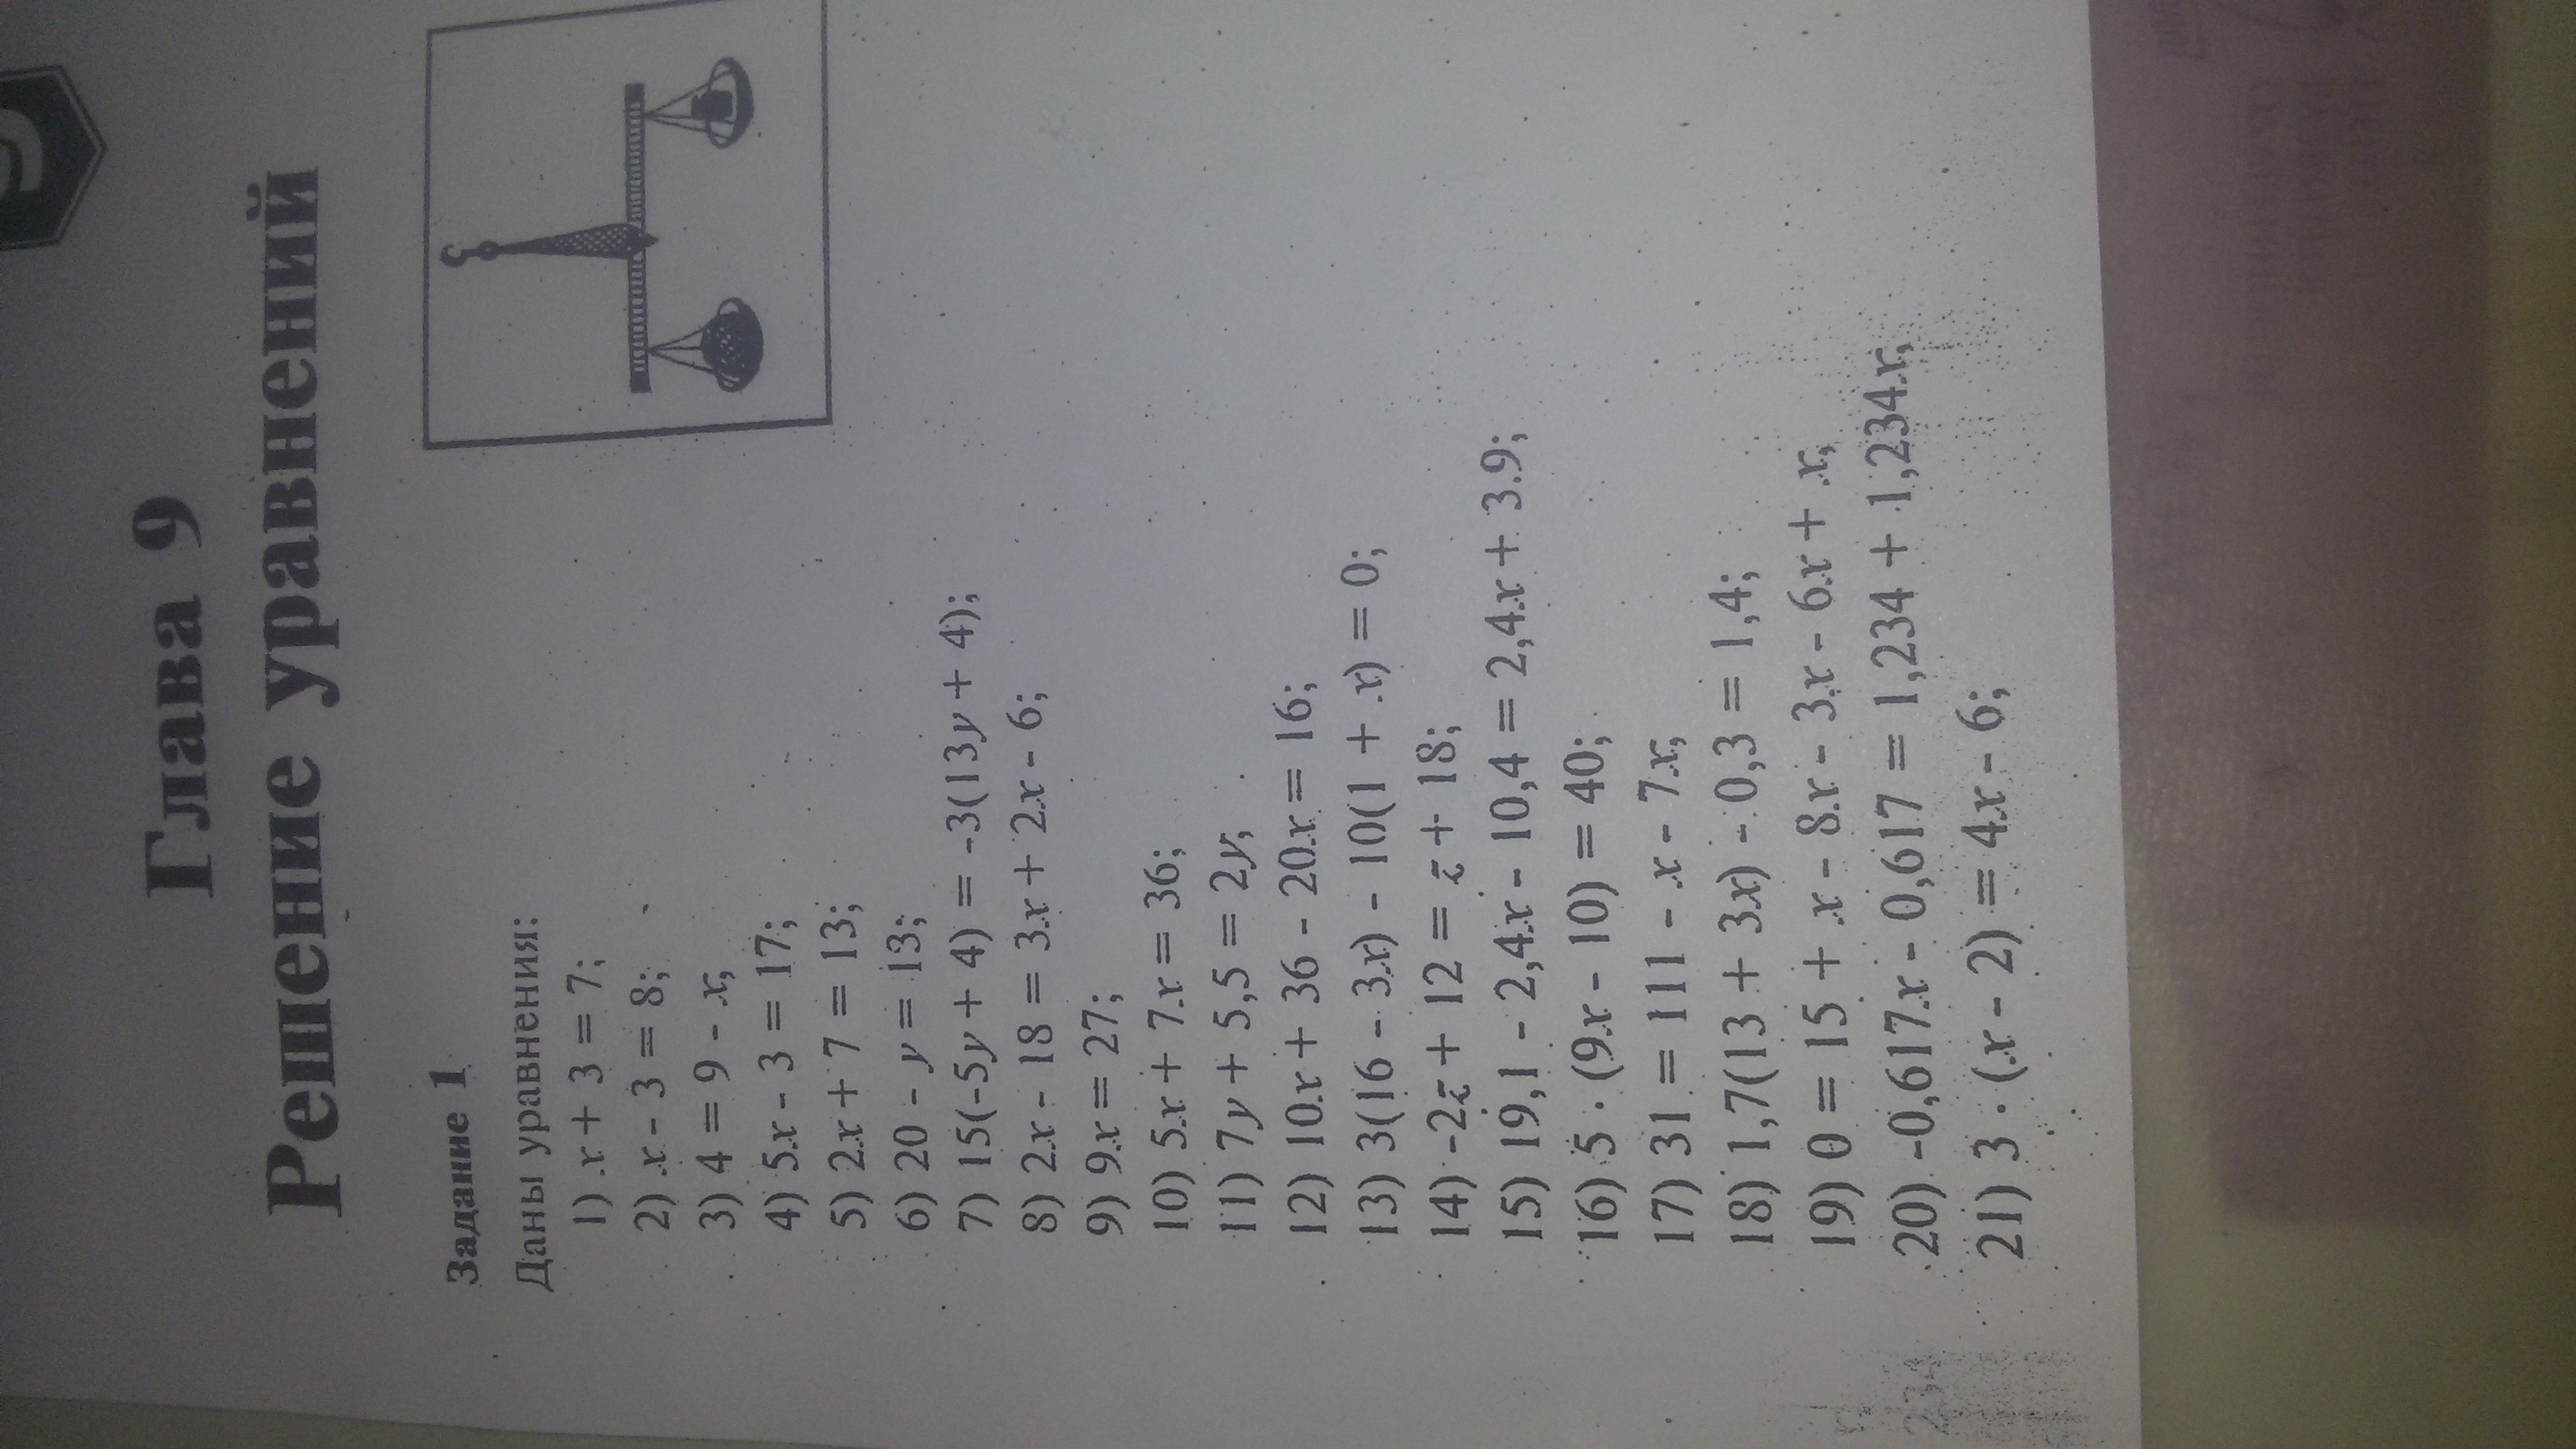 Глава 9
Решение уравнений
Задание 1
Даны уравнения:
1) x + 3 = 7;
2) x - 3 = 8;
3) 4 = 9 - x;
4) 5x - 3 = 17;
5) 2x + 7 = 13;
6) 20 - y = 13;
7) 15(-5y + 4) = -3(13y + 4);
8) 2x - 18 = 3x + 2x - 6;
9) 9x = 27;
10) 5x + 7x = 36;
11) 7y + 5,5 = 2y;
12) 10x + 36 - 20x = 16;
13) 3(16 - 3x) - 10(1 + x) = 0;
14) -2z + 12 = z + 18;
15) 19,1 - 2,4x - 10,4 = 2,4x + 3.9;
16) 5 · (9x - 10) = 40;
17) 31 = 111 - x - 7x;
18) 1,7(13 + 3x) - 0,3 = 1,4;
19) 0 = 15 + x - 8x - 3x - 6x + x;
20) -0,617x - 0,617 = 1,234 + 1,234x;
21) 3 · (x - 2) = 4x - 6;